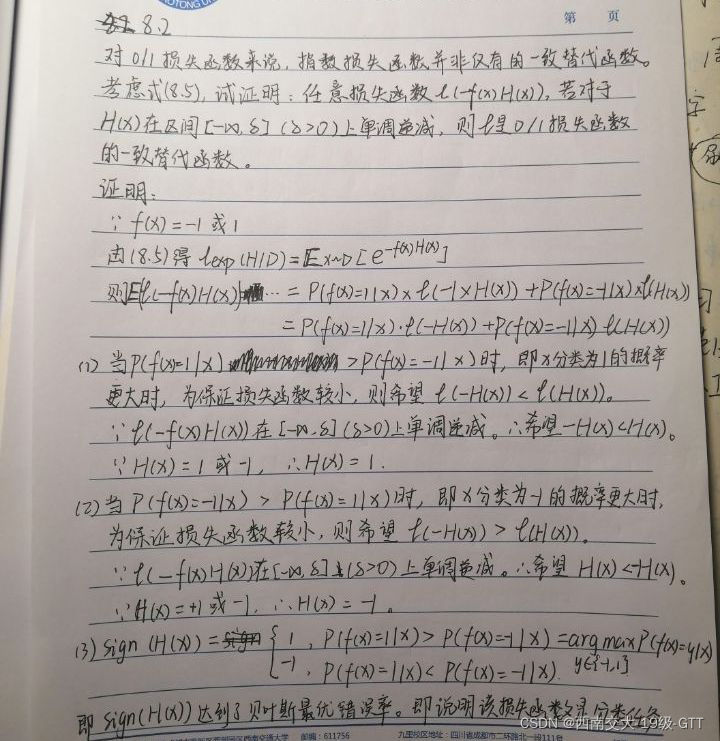 OTONG UN
第 页
8.2
对0/1损失函数来说,指数损失函数并非仅有的一致替代函数。
考虑式(8.5),试证明:任意损失函数ℓ(-f(x)H(x)),若对于
H(x)在区间[-∞,δ](δ>0)上单调递减,则ℓ是0/1损失函数
的一致替代函数。
证明:
∵ f(x)=-1或1
由(8.5)得 ℓexp(H|D)=E x~D[e^{-f(x)H(x)}]
则E[ℓ(-f(x)H(x))] … = P(f(x)=1|x)×ℓ(-1×H(x))+P(f(x)=-1|x)×ℓ(H(x))
=P(f(x)=1|x)·ℓ(-H(x))+P(f(x)=-1|x)·ℓ(H(x))
(1) 当P(f(x)=1|x) >P(f(x)=-1|x)时,即x分类为1的概率
更大时,为保证损失函数较小,则希望 ℓ(-H(x))<ℓ(H(x))。
∵ℓ(-f(x)H(x))在[-∞,δ](δ>0)上单调递减。∴希望-H(x)<H(x)。
∵H(x)=1或-1,∴H(x)=1.
(2) 当P(f(x)=-1|x)>P(f(x)=1|x)时,即x分类为-1的概率更大时,
为保证损失函数较小,则希望 ℓ(-H(x))>ℓ(H(x))。
∵ℓ(-f(x)H(x))在[-∞,δ](δ>0)上单调递减。∴希望 H(x)<-H(x)。
∵H(x)=+1或-1,∴H(x)=-1。
(3) sign(H(x))= { 1 , P(f(x)=1|x)>P(f(x)=-1|x) =argmax P(f(x)=y|x)
-1, P(f(x)=1|x)<P(f(x)=-1|x). y∈{-1,1}
即sign(H(x))达到了贝叶斯最优错误率。即说明该损失函数是分类任务
CSDN @西南交大-19级-GTT
邮编:611756 九里校区地址:四川省成都市二环路北一段111号